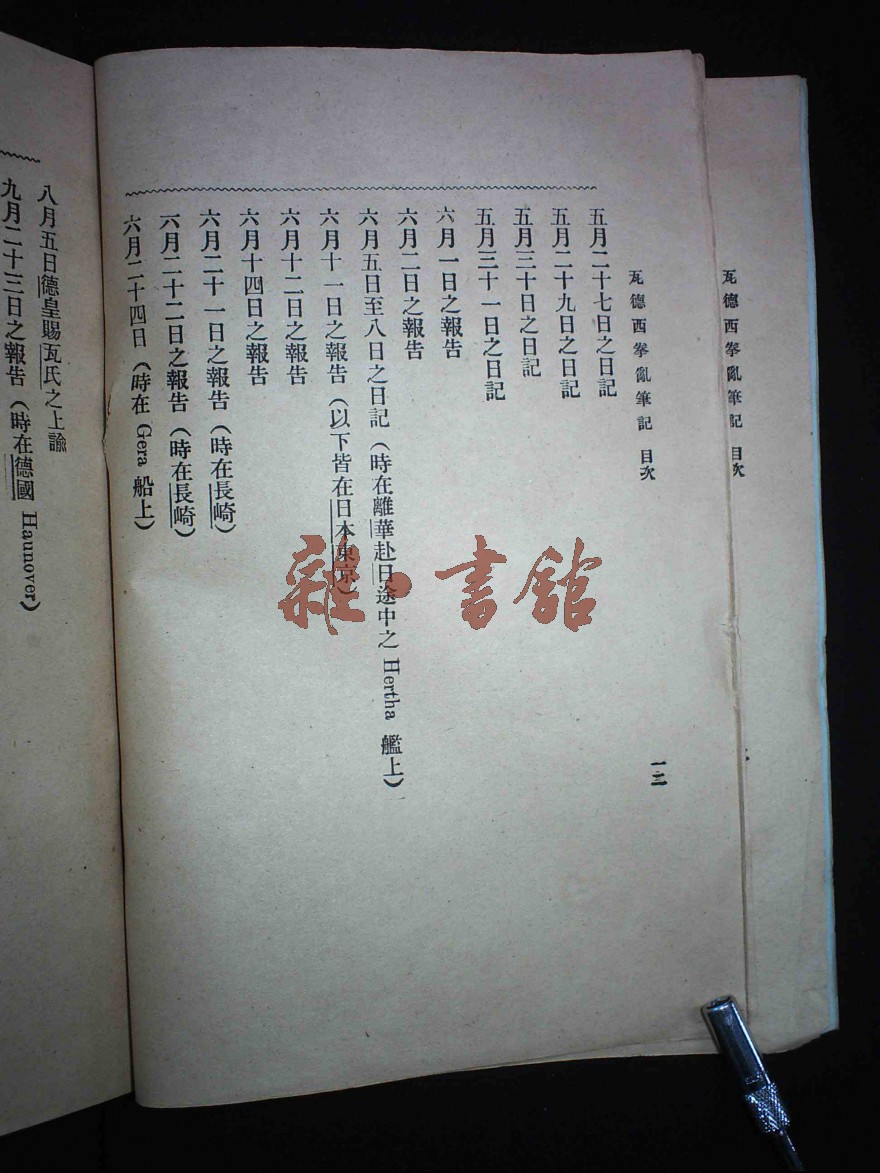 瓦德西拳亂筆記 目次
瓦德西拳亂筆記 目次
一二
五月二十七日之日記
五月二十九日之日記
五月三十日之日記
五月三十一日之日記
六月一日之報告
六月二日之報告
六月五日至八日之日記(時在離華赴日途中之 Hertha 艦上)
六月十一日之報告(以下皆在日本東京)
六月十二日之報告
六月十四日之報告
六月二十一日之報告(時在長崎)
六月二十二日之報告(時在長崎)
六月二十四日(時在 Gera 船上)
八月五日德皇賜瓦氏之上諭
九月二十三日之報告(時在德國 Haunover)
雜·書館